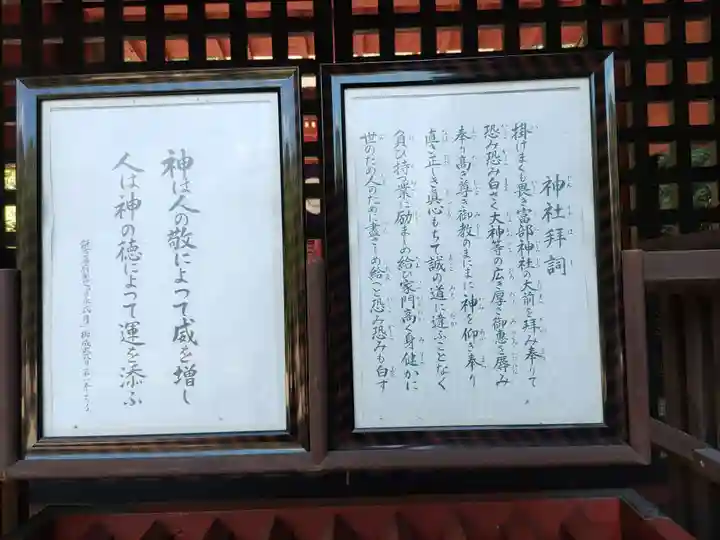 神社拝詞
掛けまくも畏き富部神社の大前を拝み奉りて
恐み恐み白さく大神等の広き厚き御恵を辱み
奉り高き尊き御教のまにまに神を仰ぎ奉り
直き正しき真心もちて誠の道に違ふことなく
負ひ持つ業に励ましめ給ひ家門高く身健かに
世のため人のために盡さしめ給へと恐み恐みも白す
神は人の敬によって威を増し
人は神の徳によって運を添ふ